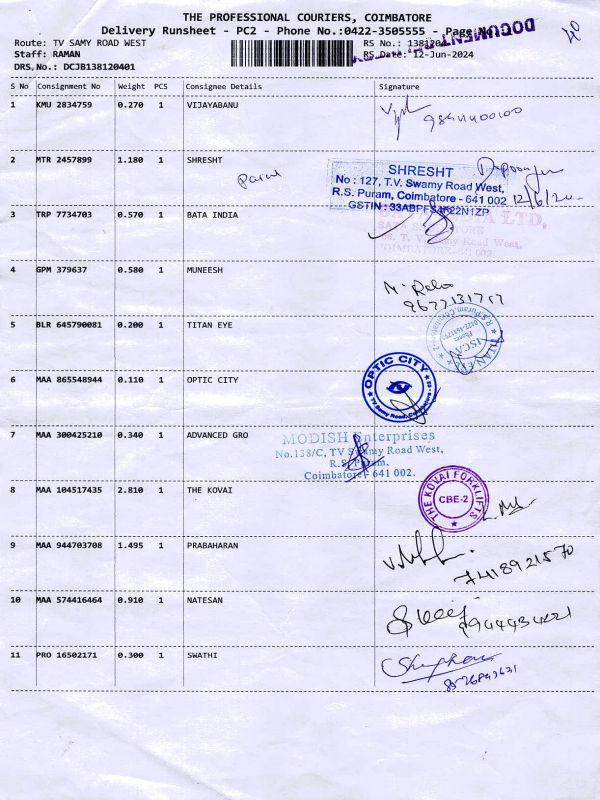 THE PROFESSIONAL COURIERS, COIMBATORE
Delivery Runsheet - PC2 - Phone No.:0422-3505555 - Page No.
DOCUMENT
Route: TV SAMY ROAD WEST
RS No.: 1381204
Staff: RAMAN
RS Date: 12-Jun-2024
DRS No.: DCJB138120401
S No Consignment No Weight PCS Consignee Details Signature
1 KMU 2834759 0.270 1 VIJAYABANU
2 MTR 2457899 1.180 1 SHRESHT
SHRESHT
No : 127, T.V. Swamy Road West,
R.S. Puram, Coimbatore - 641 002
GSTIN : 33ABPFS4622N1ZP
3 TRP 7734703 0.570 1 BATA INDIA
4 GPM 379637 0.580 1 MUNEESH
9677131757
5 BLR 645790081 0.200 1 TITAN EYE
6 MAA 865548944 0.110 1 OPTIC CITY
OPTIC CITY
7 MAA 300425210 0.340 1 ADVANCED GRO
MODISH Enterprises
No.138/C, TV Swamy Road West,
R.S. Puram,
Coimbatore - 641 002.
8 MAA 104517435 2.810 1 THE KOVAI
THE KOVAI FORKLIFTS
CBE-2
9 MAA 944703708 1.495 1 PRABAHARAN
7418921570
10 MAA 574416464 0.910 1 NATESAN
11 PRO 16502171 0.300 1 SWATHI